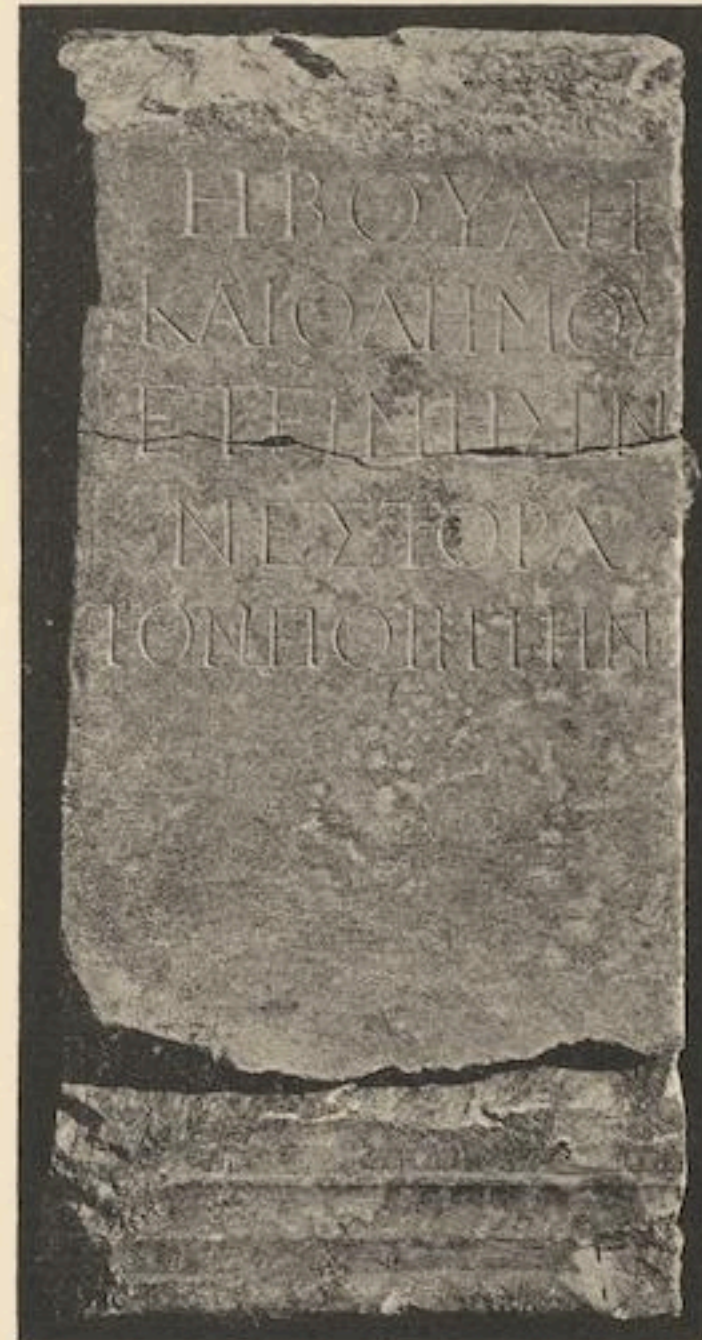 Η ΒΟΥΛΗ
ΚΑΙ Ο ΔΗΜΟΣ
ΕΤΕΙΜΗΣΙΝ
ΝΕΣΤΟΡΑ
ΤΟΝ ΠΟΙΗΤΗΝ